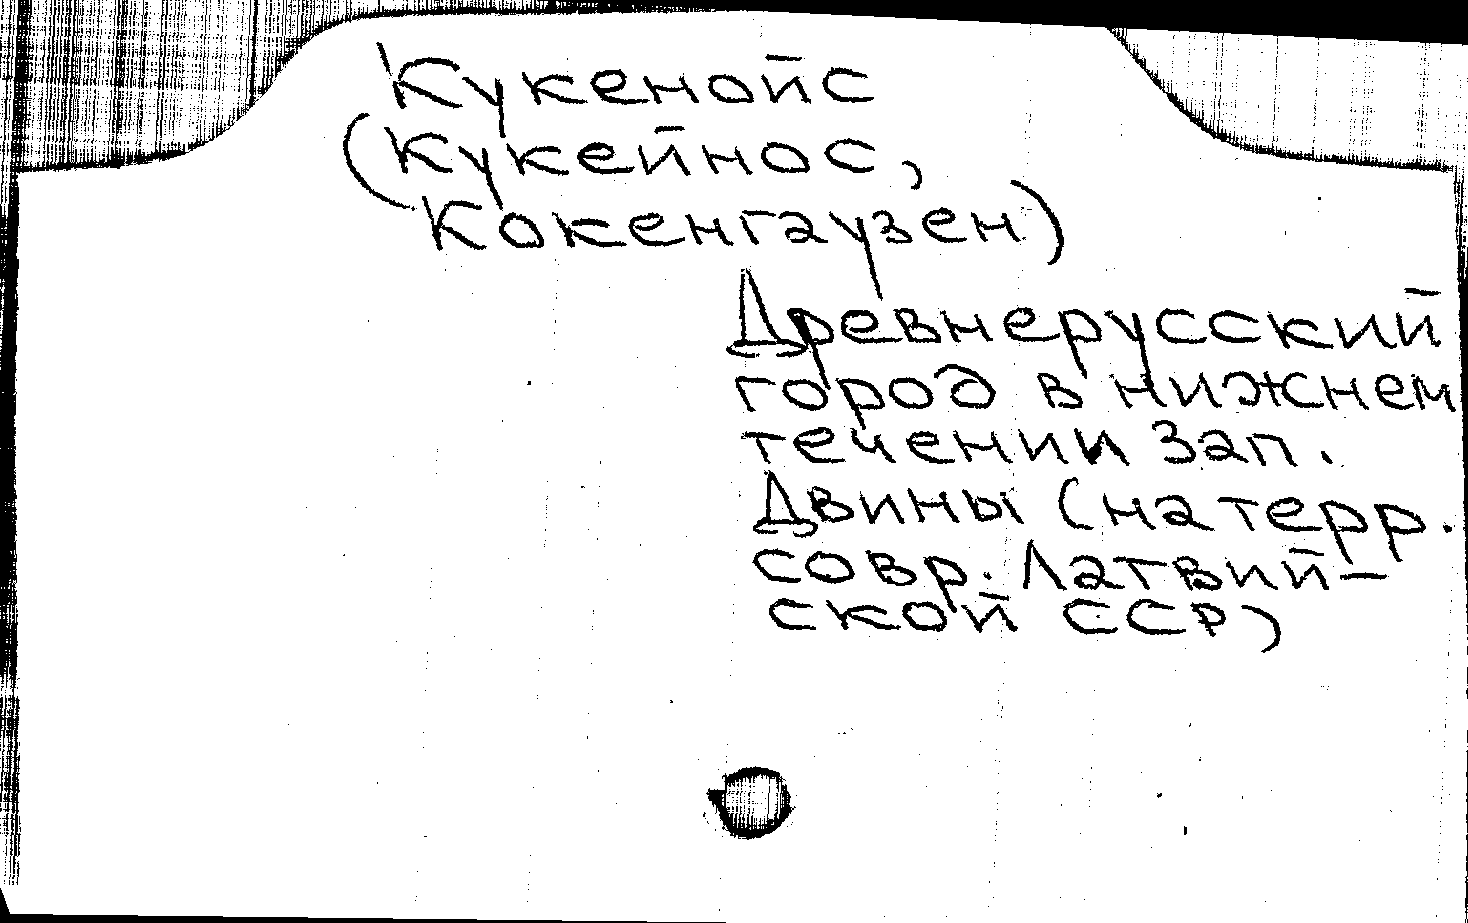 Кукенойс
(Кукейнос,
Кокенгаузен)
Древнерусский
город в нижнем
течении Зап.
Двины (на терр.
совр. Латвий-
ской ССР)